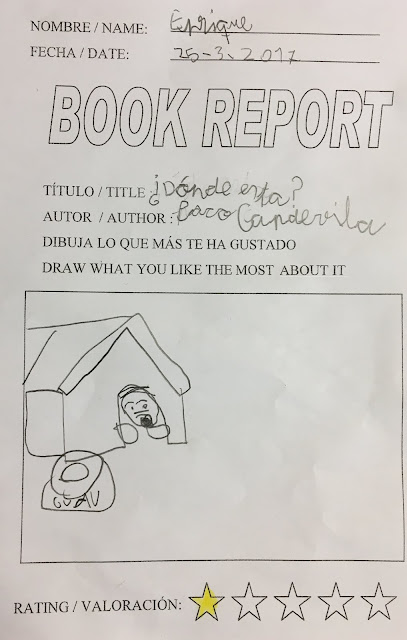 NOMBRE / NAME: Enrique
FECHA / DATE: 25-3-2017
BOOK REPORT
TÍTULO / TITLE : ¿Dónde esta?
AUTOR / AUTHOR : Paco Capdevila
DIBUJA LO QUE MÁS TE HA GUSTADO
DRAW WHAT YOU LIKE THE MOST ABOUT IT
GUAU
RATING / VALORACIÓN: